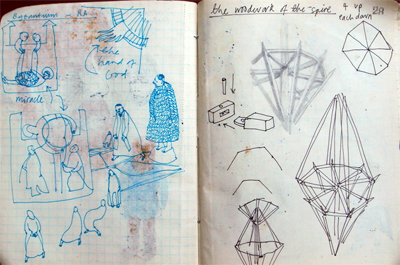 Byzantium
the
hand of
God
miracle
the woodwork of the spire
4 up
each down
29